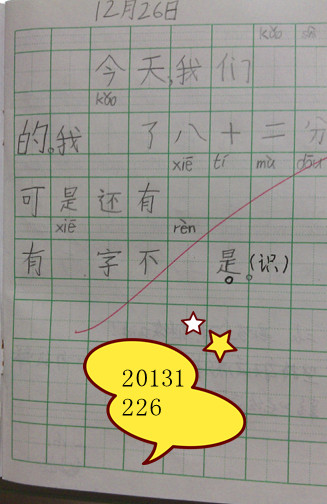 12月26日
kǎo shì
今天,我们
kǎo
的。我 了八十二分
xiě tí mù dōu
可是还有
xiě rèn
有 字不 是。(识)
20131
226